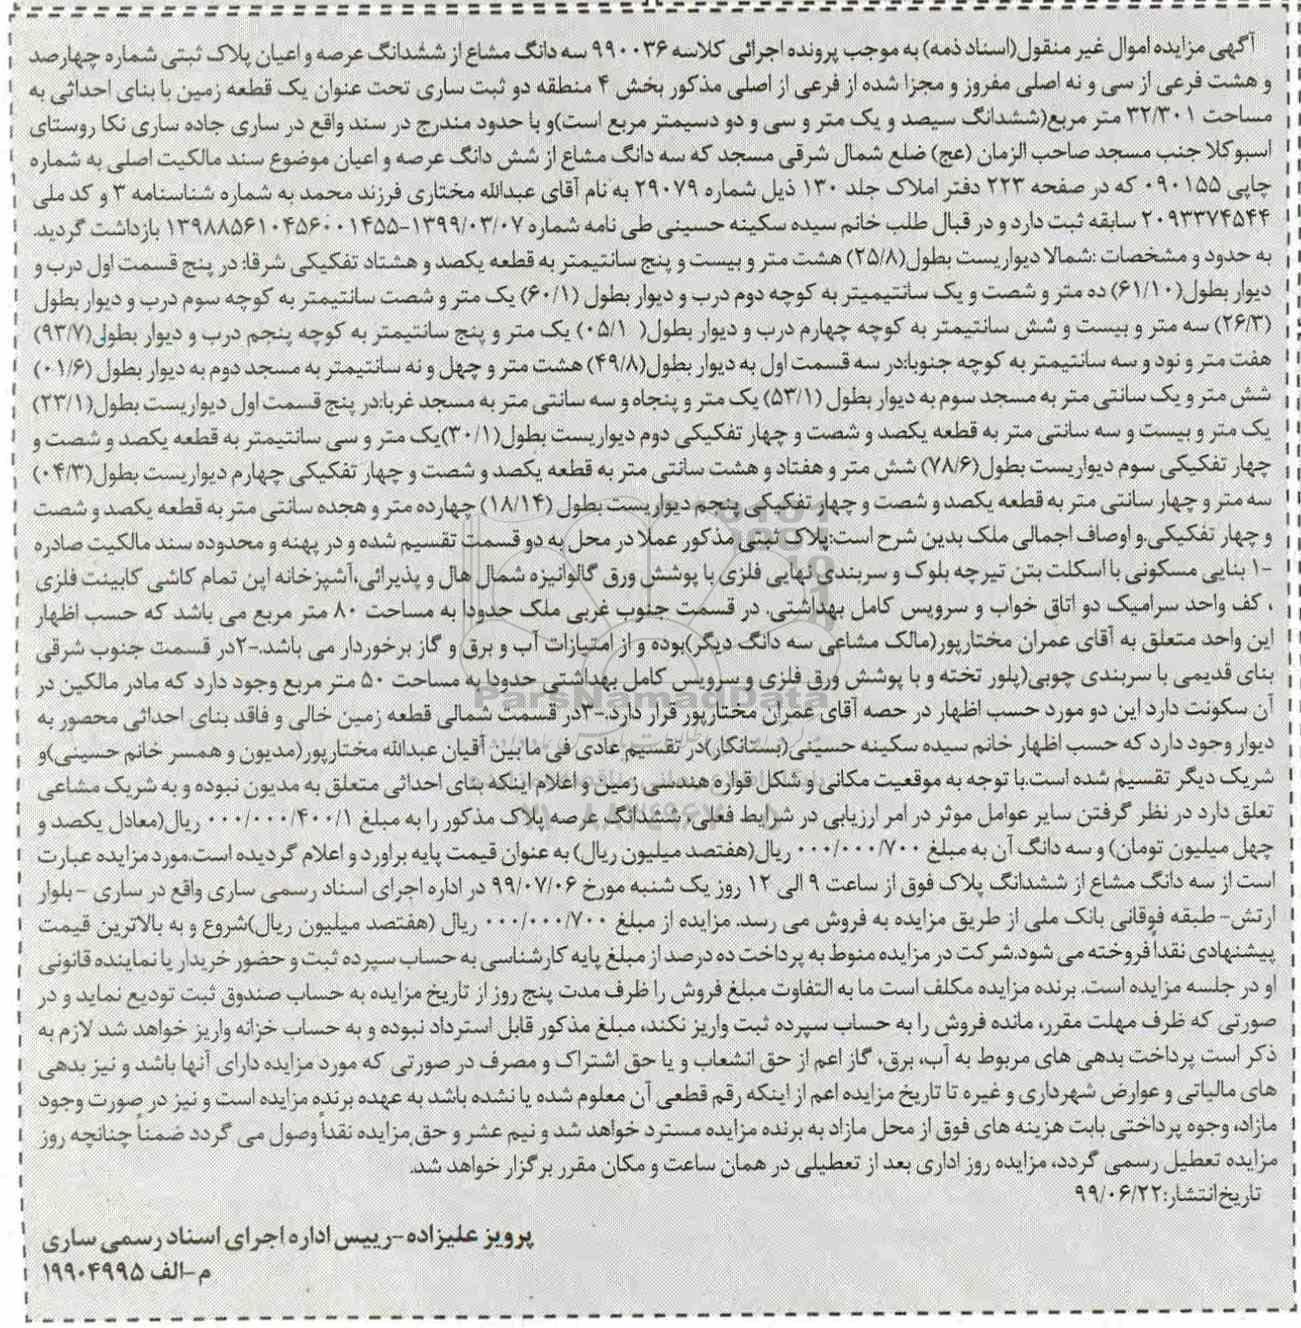 آگهی مزایده اموال غیر منقول(اسناد ذمه) به موجب پرونده اجرائی کلاسه ۹۹۰۰۳۶ سه دانگ مشاع از ششدانگ عرصه و اعیان پلاک ثبتی شماره چهارصد
و هشت فرعی از سی و نه اصلی مفروز و مجزا شده از فرعی از اصلی مذکور بخش ۴ منطقه دو ثبت ساری تحت عنوان یک قطعه زمین با بنای احداثی به
مساحت ۳۲/۳۰۱ متر مربع(ششدانگ سیصد و یک متر و سی و دو دسیمتر مربع است)و با حدود مندرج در سند واقع در ساری جاده ساری نکا روستای
اسبوکلا جنب مسجد صاحب الزمان (عج) ضلع شمال شرقی مسجد که سه دانگ مشاع از شش دانگ عرصه و اعیان موضوع سند مالکیت اصلی به شماره
چاپی ۰۹۰۱۵۵ که در صفحه ۲۲۳ دفتر املاک جلد ۱۳۰ ذیل شماره ۲۹۰۷۹ به نام آقای عبدالله مختاری فرزند محمد به شماره شناسنامه ۳ و کد ملی
۲۰۹۳۳۷۴۵۴۴ سابقه ثبت دارد و در قبال طلب خانم سیده سکینه حسینی طی نامه شماره ۱۳۹۹/۰۳/۰۷-۱۳۹۸۸۵۶۱۰۴۵۶۰۰۱۴۵۵ بازداشت گردید.
به حدود و مشخصات :شمالا دیواریست بطول(۲۵/۸) هشت متر و بیست و پنج سانتیمتر به قطعه یکصد و هشتاد تفکیکی شرقا: در پنج قسمت اول درب و
دیوار بطول(۶۱/۱۰) ده متر و شصت و یک سانتیمیتر به کوچه دوم درب و دیوار بطول (۶۰/۱) یک متر و شصت سانتیمتر به کوچه سوم درب و دیوار بطول
(۲۶/۳) سه متر و بیست و شش سانتیمتر به کوچه چهارم درب و دیوار بطول( ۰۵/۱) یک متر و پنج سانتیمتر به کوچه پنجم درب و دیوار بطول(۹۳/۷)
هفت متر و نود و سه سانتیمتر به کوچه جنوبا:در سه قسمت اول به دیوار بطول(۴۹/۸) هشت متر و چهل و نه سانتیمتر به مسجد دوم به دیوار بطول (۰۱/۶)
شش متر و یک سانتی متر به مسجد سوم به دیوار بطول (۵۳/۱) یک متر و پنجاه و سه سانتی متر به مسجد غربا:در پنج قسمت اول دیواریست بطول(۲۳/۱)
یک متر و بیست و سه سانتی متر به قطعه یکصد و شصت و چهار تفکیکی دوم دیواریست بطول(۳۰/۱)یک متر و سی سانتیمتر به قطعه یکصد و شصت و
چهار تفکیکی سوم دیواریست بطول(۷۸/۶) شش متر و هفتاد و هشت سانتی متر به قطعه یکصد و شصت و چهار تفکیکی چهارم دیواریست بطول(۰۴/۳)
سه متر و چهار سانتی متر به قطعه یکصد و شصت و چهار تفکیکی پنجم دیواریست بطول (۱۸/۱۴) چهارده متر و هجده سانتی متر به قطعه یکصد و شصت
و چهار تفکیکی.و اوصاف اجمالی ملک بدین شرح است:پلاک ثبتی مذکور عملا در محل به دو قسمت تقسیم شده و در پهنه و محدوده سند مالکیت صادره
۱- بنایی مسکونی با اسکلت بتن تیرچه بلوک و سربندی نهایی فلزی با پوشش ورق گالوانیزه شمال هال و پذیرائی،آشپزخانه اپن تمام کاشی کابینت فلزی
، کف واحد سرامیک دو اتاق خواب و سرویس کامل بهداشتی. در قسمت جنوب غربی ملک حدودا به مساحت ۸۰ متر مربع می باشد که حسب اظهار
این واحد متعلق به آقای عمران مختارپور(مالک مشاعی سه دانگ دیگر)بوده و از امتیازات آب و برق و گاز برخوردار می باشد.-۲در قسمت جنوب شرقی
بنای قدیمی با سربندی چوبی(پلور تخته و با پوشش ورق فلزی و سرویس کامل بهداشتی حدودا به مساحت ۵۰ متر مربع وجود دارد که مادر مالکین در
آن سکونت دارد این دو مورد حسب اظهار در حصه آقای عمران مختارپور قرار دارد.-۳در قسمت شمالی قطعه زمین خالی و فاقد بنای احداثی محصور به
دیوار وجود دارد که حسب اظهار خانم سیده سکینه حسینی(بستانکار)در تقسیم عادی فی ما بین آقیان عبدالله مختارپور(مدیون و همسر خانم حسینی)و
شریک دیگر تقسیم شده است.با توجه به موقعیت مکانی و شکل قواره هندسی زمین و اعلام اینکه بنای احداثی متعلق به مدیون نبوده و به شریک مشاعی
تعلق دارد در نظر گرفتن سایر عوامل موثر در امر ارزیابی در شرایط فعلی، ششدانگ عرصه پلاک مذکور را به مبلغ ۰۰۰/۰۰۰/۴۰۰/۱ ریال(معادل یکصد و
چهل میلیون تومان) و سه دانگ آن به مبلغ ۰۰۰/۰۰۰/۷۰۰ ریال(هفتصد میلیون ریال) به عنوان قیمت پایه براورد و اعلام گردیده است.مورد مزایده عبارت
است از سه دانگ مشاع از ششدانگ پلاک فوق از ساعت ۹ الی ۱۲ روز یک شنبه مورخ ۹۹/۰۷/۰۶ در اداره اجرای اسناد رسمی ساری واقع در ساری - بلوار
ارتش- طبقه فوقانی بانک ملی از طریق مزایده به فروش می رسد. مزایده از مبلغ ۰۰۰/۰۰۰/۷۰۰ ریال (هفتصد میلیون ریال)شروع و به بالاترین قیمت
پیشنهادی نقداً فروخته می شود.شرکت در مزایده منوط به پرداخت ده درصد از مبلغ پایه کارشناسی به حساب سپرده ثبت و حضور خریدار یا نماینده قانونی
او در جلسه مزایده است. برنده مزایده مکلف است ما به التفاوت مبلغ فروش را ظرف مدت پنج روز از تاریخ مزایده به حساب صندوق ثبت تودیع نماید و در
صورتی که ظرف مهلت مقرر، مانده فروش را به حساب سپرده ثبت واریز نکند، مبلغ مذکور قابل استرداد نبوده و به حساب خزانه واریز خواهد شد لازم به
ذکر است پرداخت بدهی های مربوط به آب، برق، گاز اعم از حق انشعاب و یا حق اشتراک و مصرف در صورتی که مورد مزایده دارای آنها باشد و نیز بدهی
های مالیاتی و عوارض شهرداری و غیره تا تاریخ مزایده اعم از اینکه رقم قطعی آن معلوم شده یا نشده باشد به عهده برنده مزایده است و نیز در صورت وجود
مازاد، وجوه پرداختی بابت هزینه های فوق از محل مازاد به برنده مزایده مسترد خواهد شد و نیم عشر و حق مزایده نقداً وصول می گردد ضمناً چنانچه روز
مزایده تعطیل رسمی گردد، مزایده روز اداری بعد از تعطیلی در همان ساعت و مکان مقرر برگزار خواهد شد.
تاریخ انتشار:۹۹/۰۶/۲۲
پرویز علیزاده-رییس اداره اجرای اسناد رسمی ساری
م-الف ۱۹۹۰۴۹۹۵
ParsNamadData